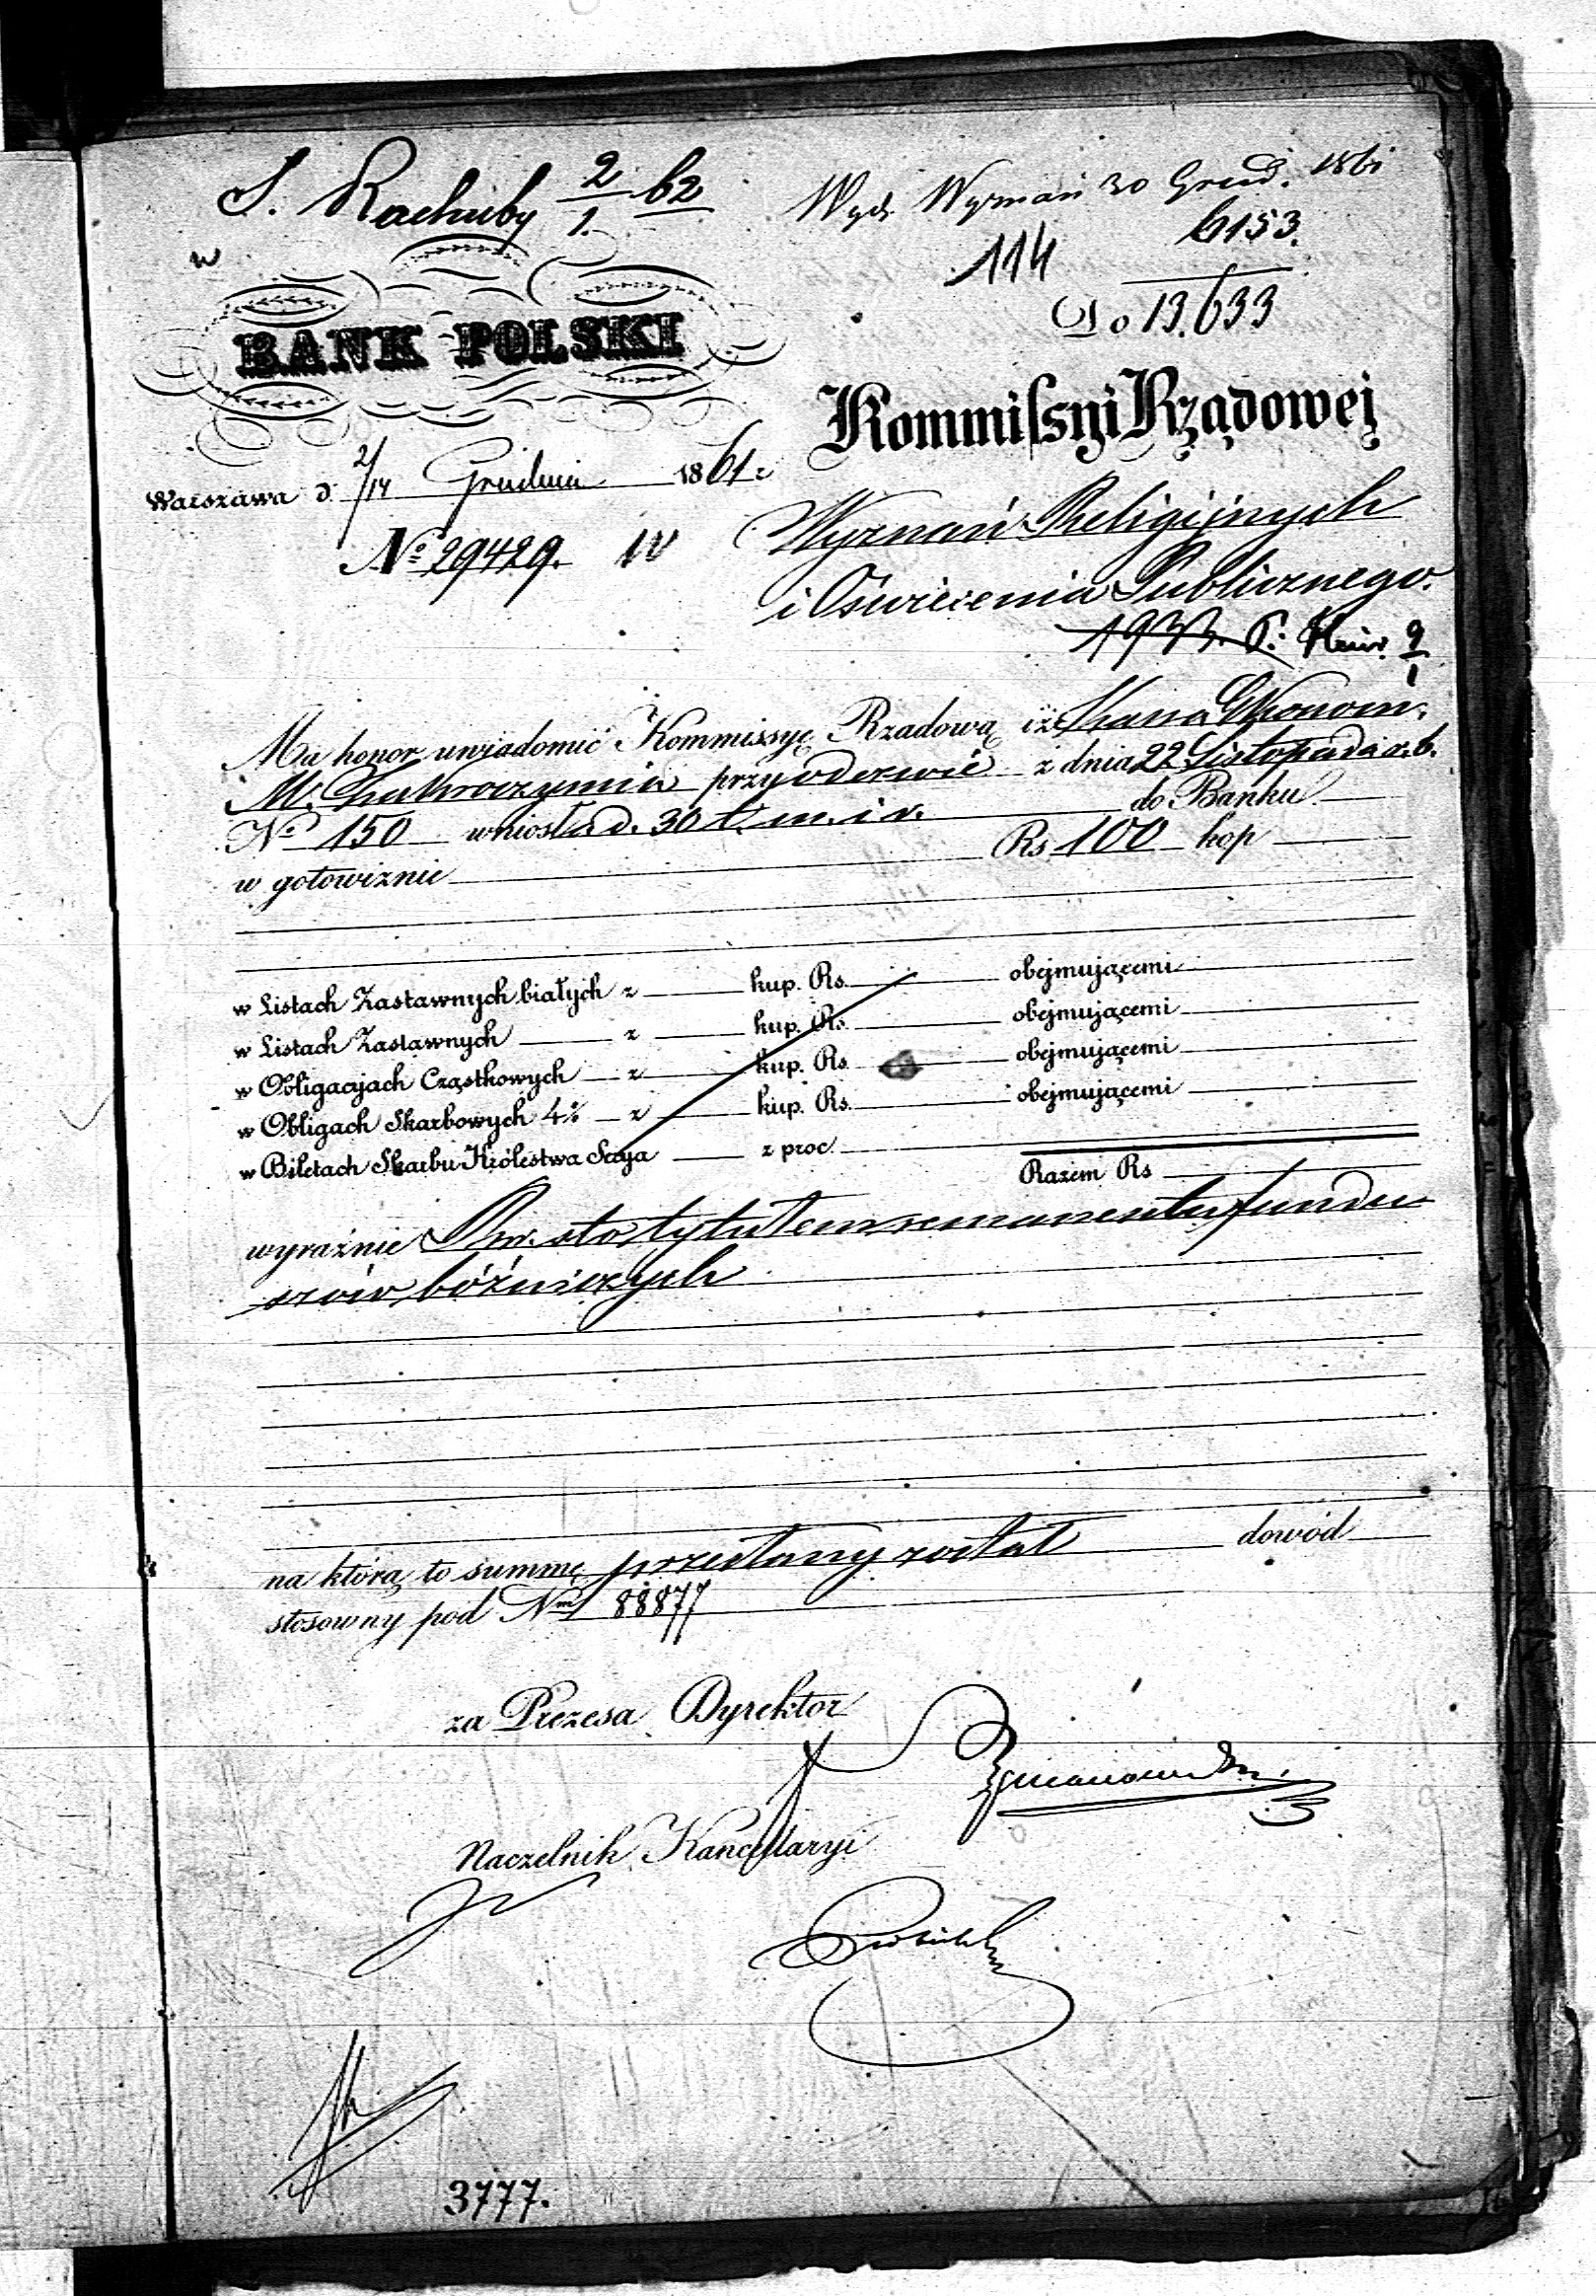 S. Rachuby 2/1. 62
Wyd. Wyznań 30 Grud. 1861
6153.
114
Do 13.633
w
BANK POLSKI
Kommissyi Rządowej
Warszawa d. 2/14 Grudnia 1861 r.
Wyznań Religijnych
No 29429. IV
i Oświecenia Publicznego.
1933. 9/1
Ma honor uwiadomić Kommissyę Rządową iż Kassa Ekonom.
M. Zakroczymia przy odezwie z dnia 22 Listopada r. b.
No 150 wniosła d. 30 t. m. i r. do Banku
w gotowiźnie Rs 100 kop
w Listach Zastawnych białych z kup. Rs. obejmującemi
w Listach Zastawnych z kup. Rs. obejmującemi
w Obligacyjach Cząstkowych z kup. Rs. obejmującemi
w Obligach Skarbowych 4% z kup. Rs. obejmującemi
w Biletach Skarbu Królestwa Serya z proc.
Razem Rs
wyraźnie Rsr. sto tytułem remanentu fundu
szów bóżniczych
na którą to summę przesłany został dowód
stosowny pod Nm 88877
za Prezesa Dyrektor
Naczelnik Kancellaryi
3777.